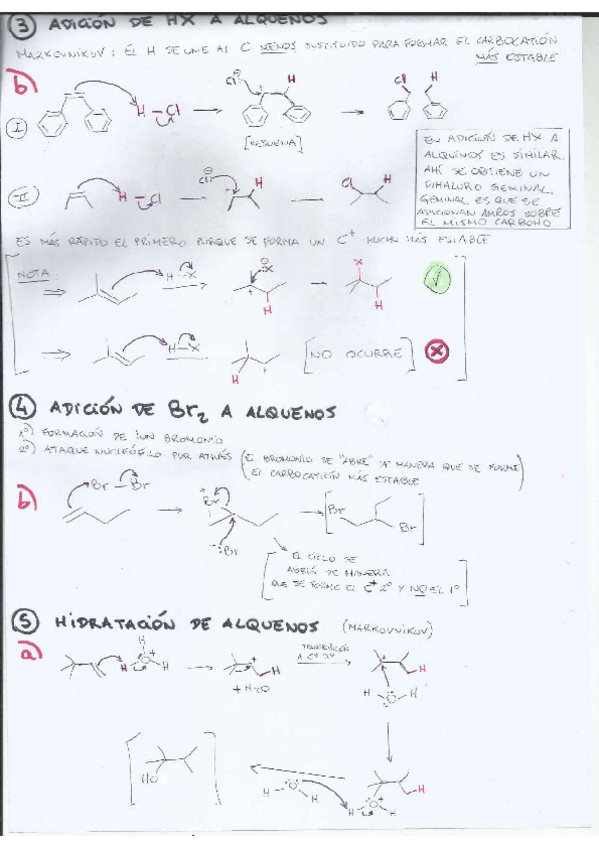 ③ ADICIÓN DE HX A ALQUENOS
MARKOVNIKOV: EL H SE UNE AL C MENOS SUSTITUIDO PARA FORMAR EL CARBOCATIÓN
MÁS ESTABLE
b)
I
H—Cl
Cl
H
Cl
H
[RESUENA]
EN ADICIÓN DE HX A
ALQUINOS ES SIMILAR.
AHÍ SE OBTIENE UN
DIHALURO GEMINAL.
GEMINAL ES QUE SE
ADICIONAN AMBOS SOBRE
EL MISMO CARBONO
II
H—Cl
Cl
H
Cl
H
ES MÁS RÁPIDO EL PRIMERO PORQUE SE FORMA UN C+ MUCHO MÁS ESTABLE
NOTA
H—X
X
+
H
X
H
H—X
H
+
[NO OCURRE]
④ ADICIÓN DE Br2 A ALQUENOS
1º) FORMACIÓN DE IÓN BROMONIO
2º) ATAQUE NUCLEÓFILO POR ATRÁS (EL BROMONIO SE "ABRE" DE MANERA QUE SE FORME
EL CARBOCATIÓN MÁS ESTABLE)
b)
Br—Br
+
Br
Br
Br
Br
EL CICLO SE
ABRIÓ DE MANERA
QUE SE FORME EL C+ 2º Y NO EL 1º
⑤ HIDRATACIÓN DE ALQUENOS (MARKOVNIKOV)
a)
H
H O H
+
H
+ H2O
TRANSPOSICIÓN
A C+ 3º
+
H
H O H
HO
H O H
H
H O H
+